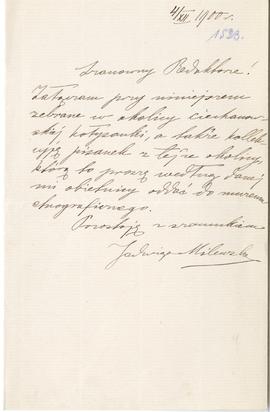 4/XII 1900 r.
153B.
Szanowny Redaktorze!
Załączam przy niniejszem
zebrane w okolicy ciechanow-
skiej kołysanki, a także kollek-
cyję pisanek z tejże okolicy,
którą to proszę według danej
mi obietnicy oddać do muzeum
etnograficznego.
Pozostaję z szacunkiem
Jadwiga Milewska